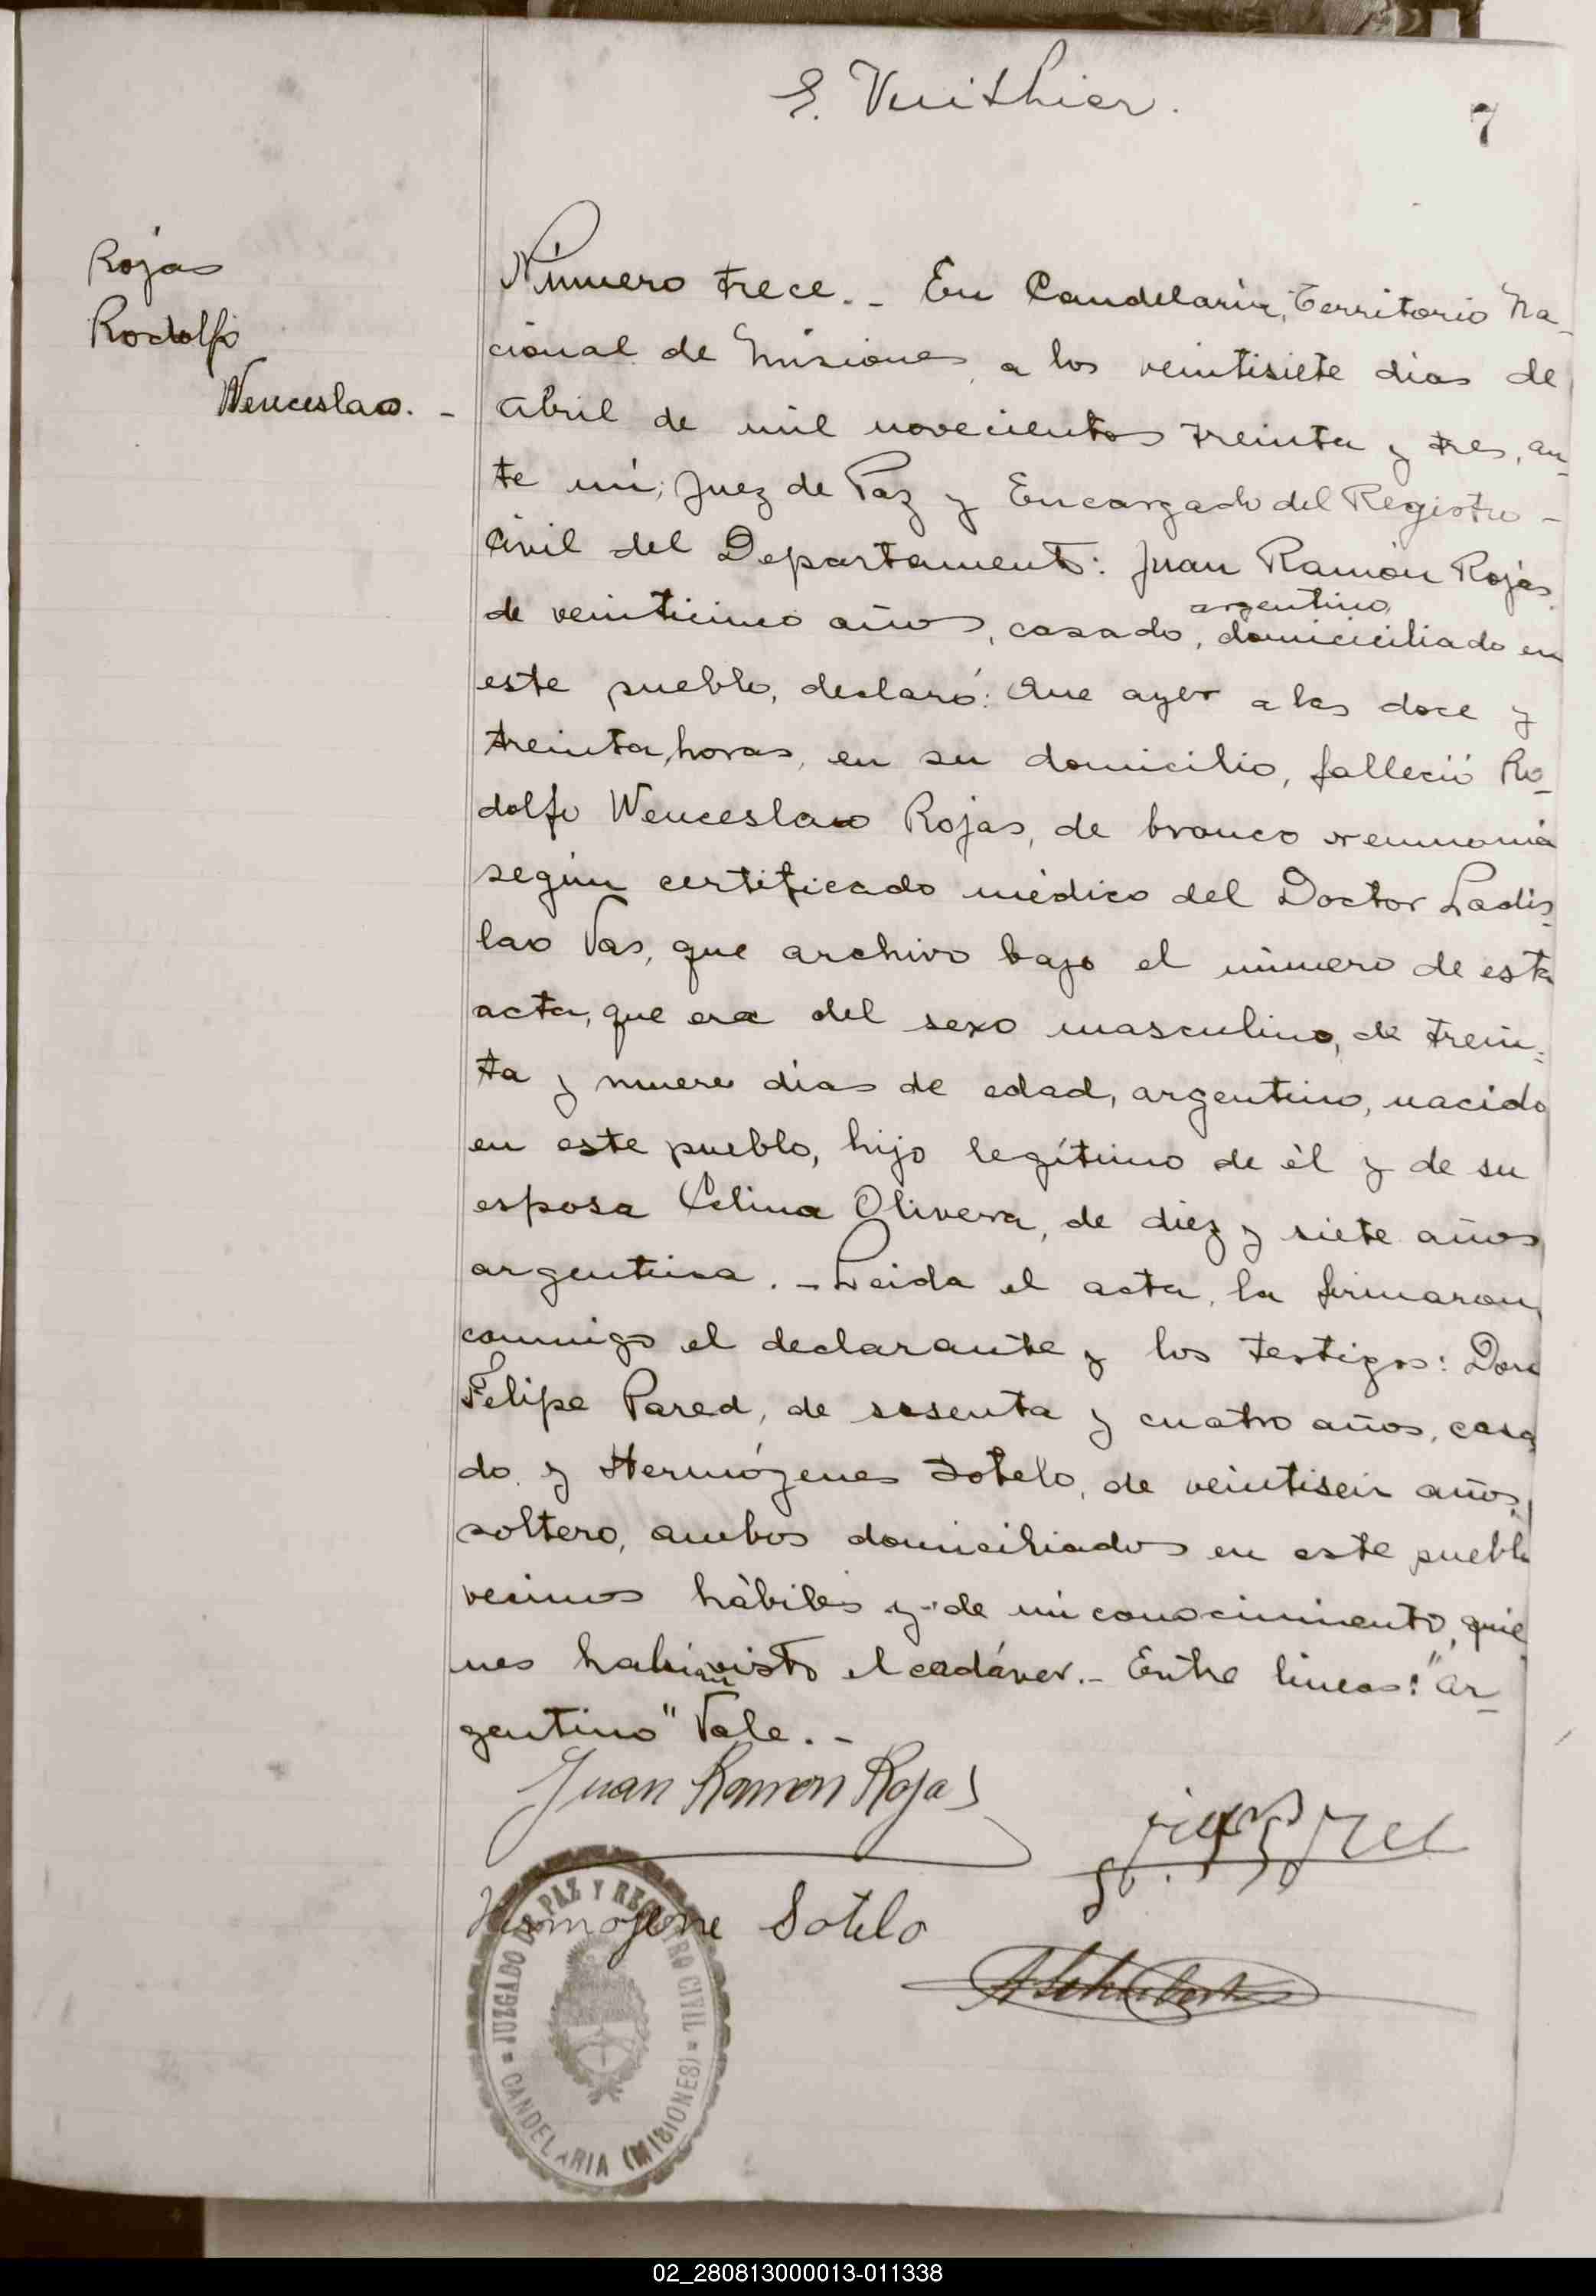 7
Rojas
Rodolfo
Wenceslao. -
Número trece. - En Candelaria, Territorio Na-
cional de Misiones, a los veintisiete dias de
Abril de mil novecientos treinta y tres, an-
te mi, Juez de Paz y Encargado del Registro -
Civil del Departamento: Juan Ramón Rojas,
argentino,
de veinticinco años, casado, domiciciliado en
este pueblo, declaró: Que ayer a las doce y
treinta, horas, en su domicilio, falleció Ro-
dolfo Wenceslao Rojas, de bronco neumonia
según certificado médico del Doctor Ladis-
lao Vas, que archivo bajo el número de esta
acta, que era del sexo masculino, de trein-
ta y nueve dias de edad, argentino, nacido
en este pueblo, hijo legítimo de él y de su
esposa Celina Olivera, de diez y siete años
argentina. - Leida el acta, la firmaron
conmigo el declarante y los testigos: Don
Felipe Pared, de sesenta y cuatro años, casa
do y Hermógenes Sotelo, de veintiseis años,
soltero, ambos domiciliados en este pueblo
vecinos hábiles y de mi conocimiento, quie
nes habian visto el cadáver. - Entre lineas: "ar-
gentino" Vale. -
Juan Ramon Rojas
Hermogene Sotelo
JUZGADO DE PAZ Y REGISTRO CIVIL
CANDELARIA (MISIONES)
02_280813000013-011338